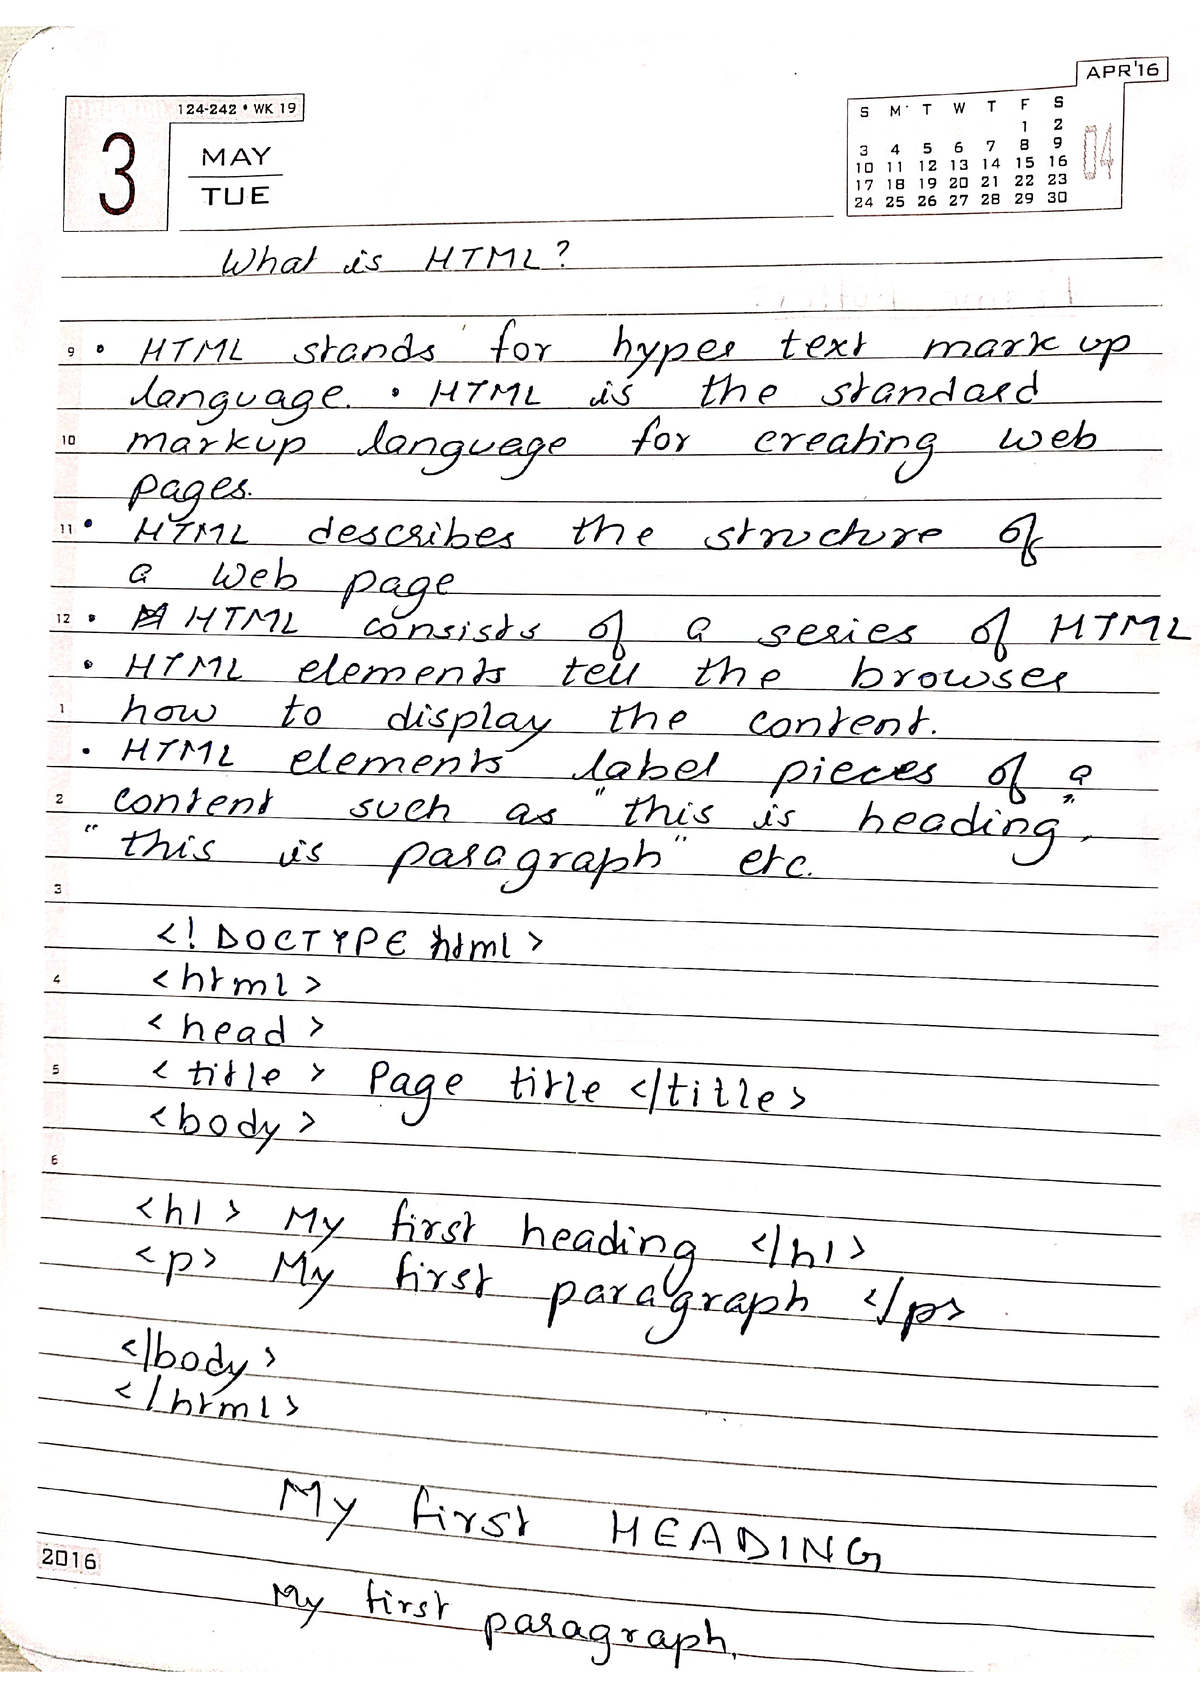 APR'16
124-242 • WK 19
3
MAY
TUE
S M T W T F S
1 2
3 4 5 6 7 8 9
10 11 12 13 14 15 16
17 18 19 20 21 22 23
24 25 26 27 28 29 30
04
What is HTML?
9 • HTML stands for hyper text mark up
language. • HTML is the standard
10 markup language for creating web
pages.
11 • HTML describes the structure of
a web page
12 • HTML consists of a series of HTML
• HTML elements tell the browser
1 how to display the content.
• HTML elements label pieces of a
2 content such as "this is heading",
"this is paragraph" etc.
3
<! DOCTYPE html>
4 <html>
<head>
5 <title> Page title </title>
<body>
6
<h1> My first heading </h1>
<p> My first paragraph </p>
</body>
</html>
My first HEADING
2016
My first paragraph.